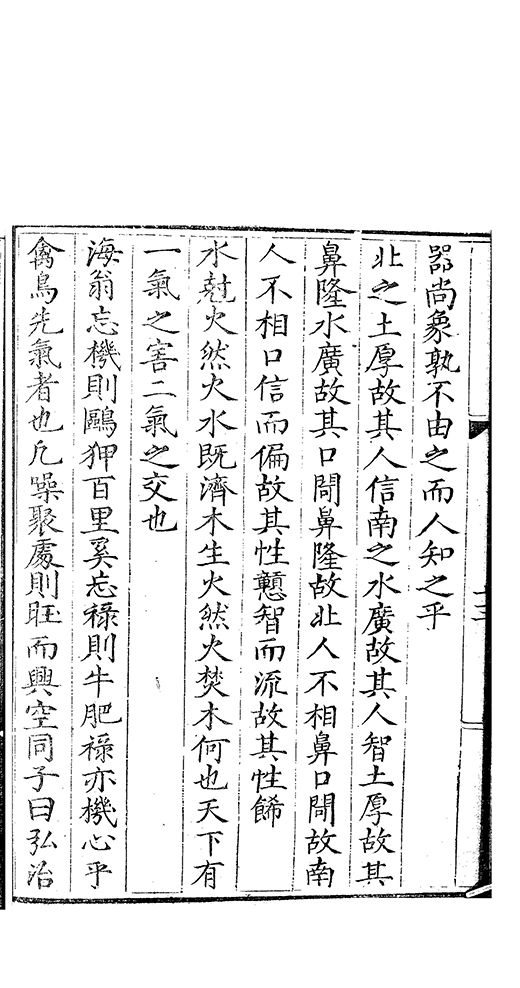 器尚象孰不由之而人知之乎
北之土厚故其人信南之水廣故其人智土厚故其
鼻隆水廣故其口閜鼻隆故北人不相鼻口閜故南
人不相口信而偏故其性戇智而流故其性餙
水尅火然火水既濟木生火然火焚木何也天下有
一氣之害二氣之交也
海翁忘機則鷗狎百里奚忘祿則牛肥祿亦機心乎
禽鳥先氣者也凡噪聚處則旺而興空同子曰弘治